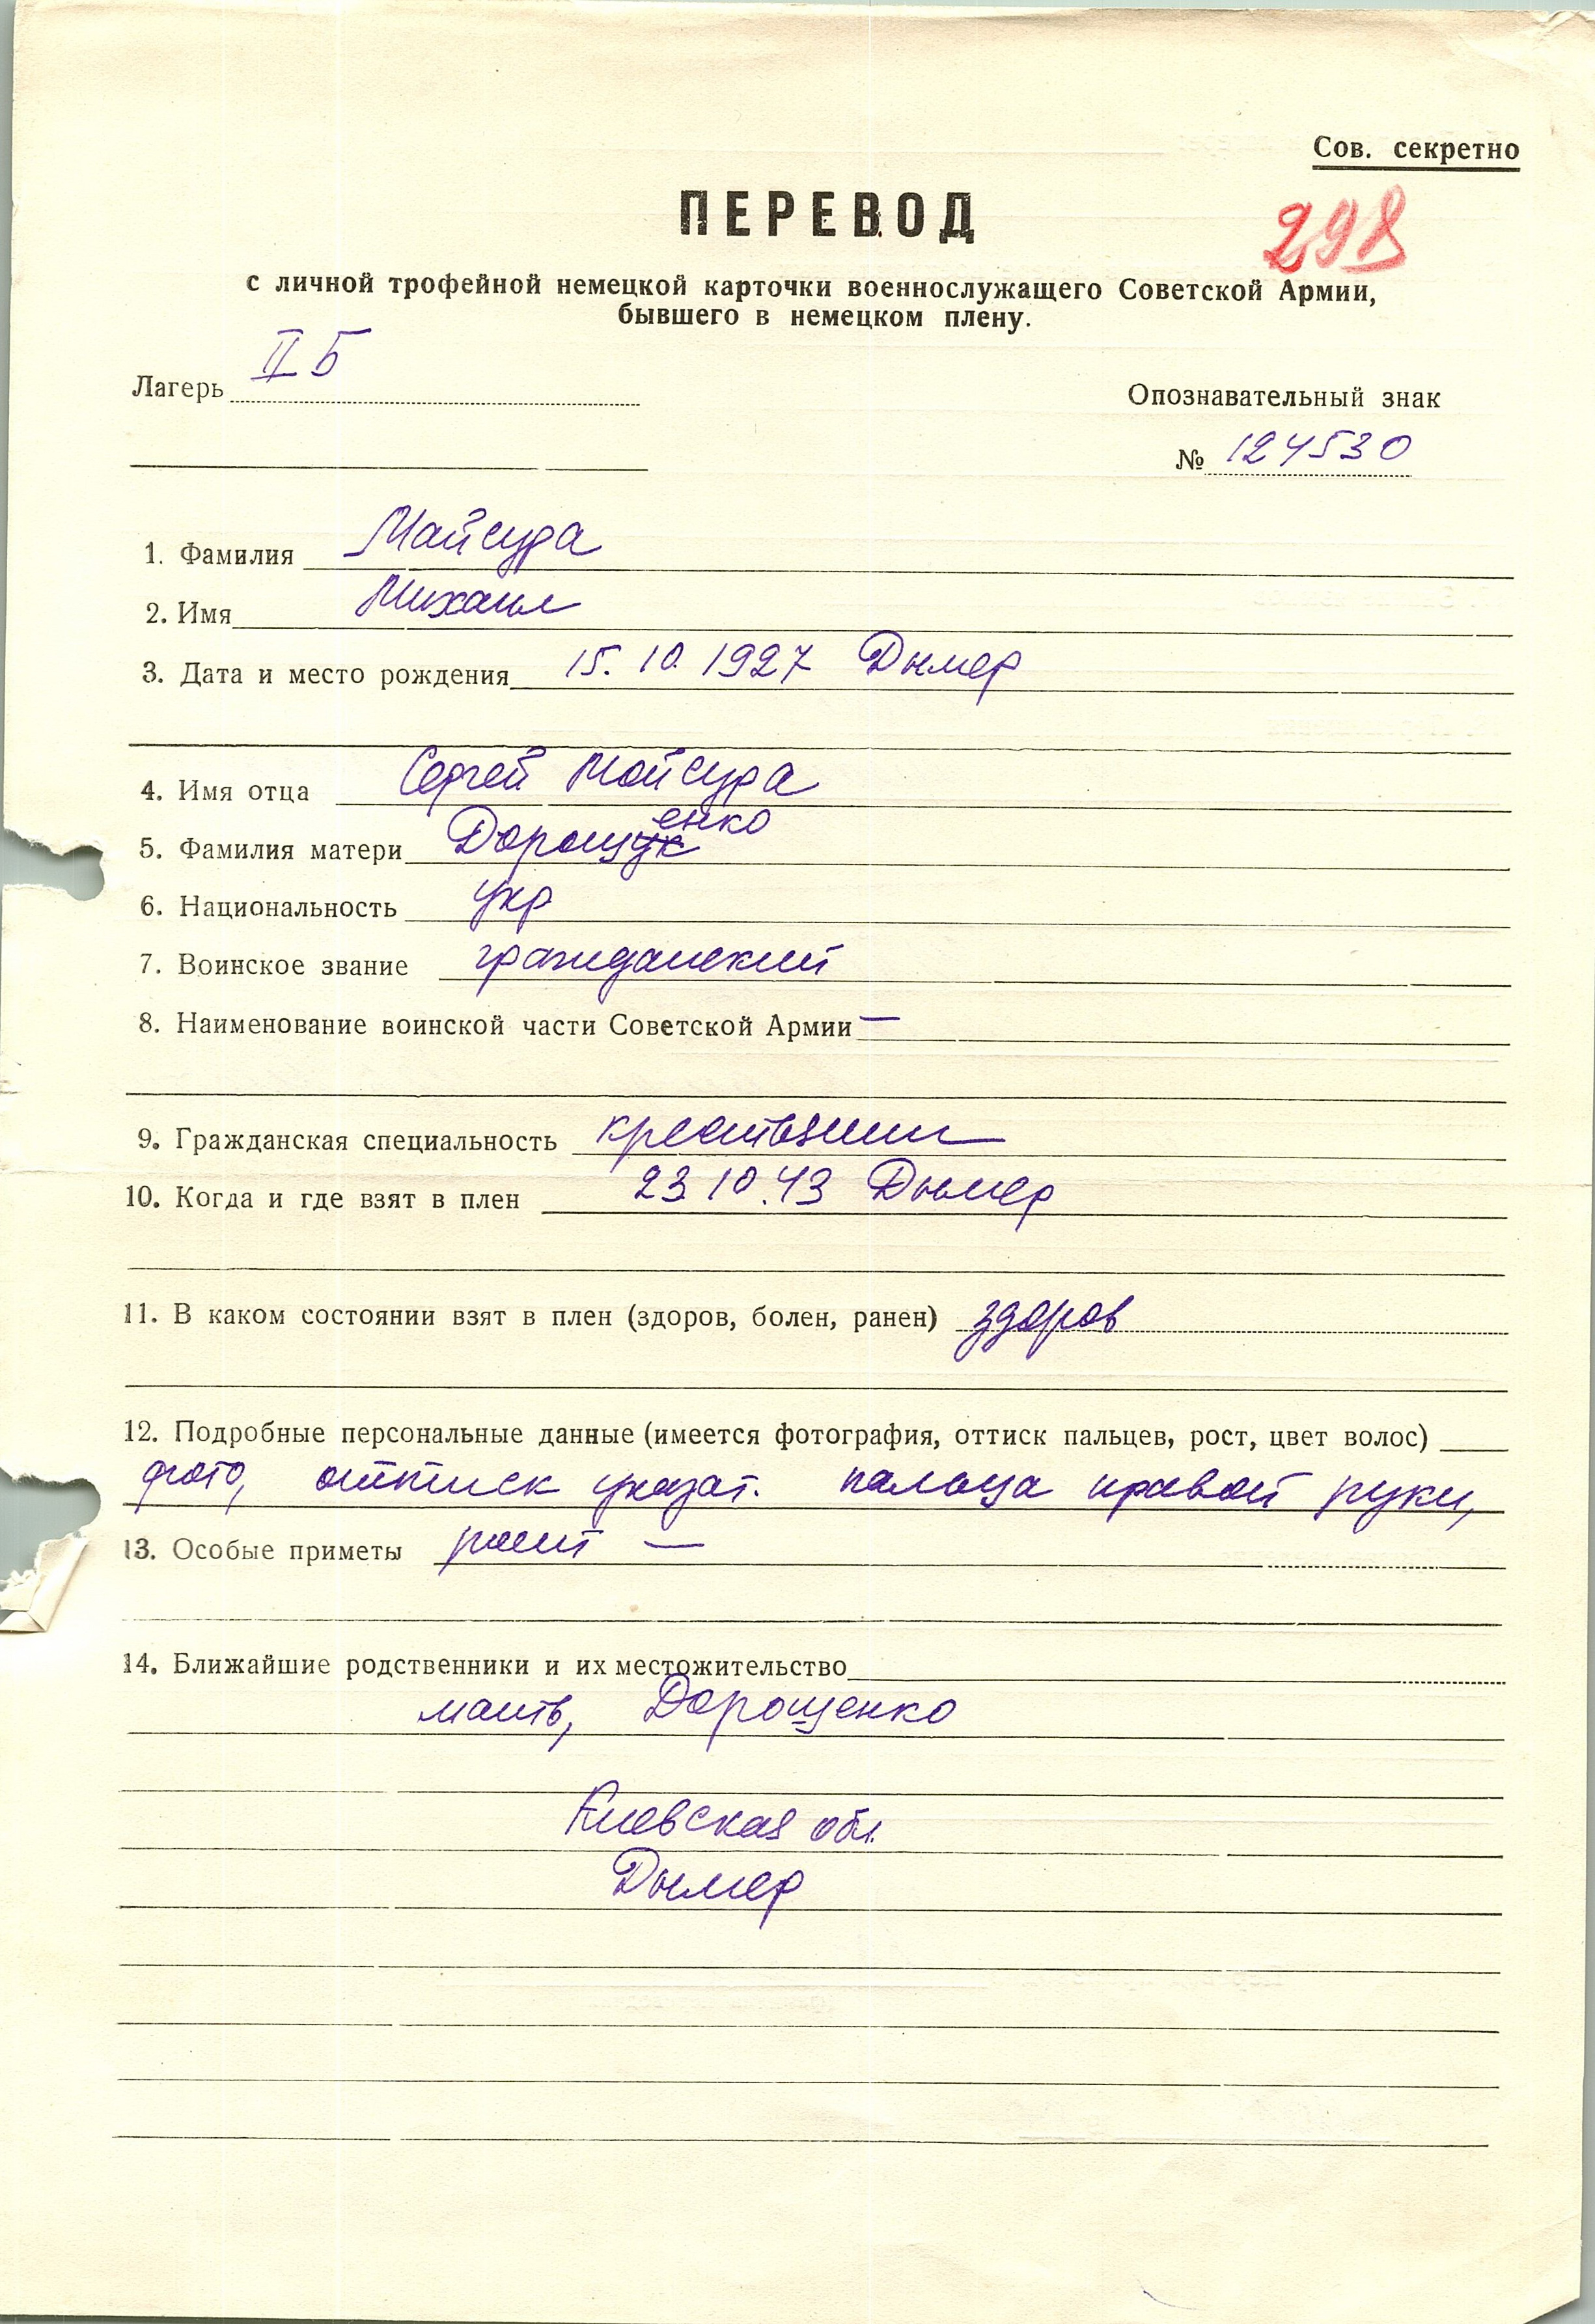 Сов. секретно
ПЕРЕВОД
298
с личной трофейной немецкой карточки военнослужащего Советской Армии,
бывшего в немецком плену.
Лагерь II Б
Опознавательный знак
№ 124530
1. Фамилия Майсура
2. Имя Михаил
3. Дата и место рождения 15. 10. 1927 Дымер
4. Имя отца Сергей Майсура
5. Фамилия матери Дорощук енко
6. Национальность укр
7. Воинское звание гражданский
8. Наименование воинской части Советской Армии —
9. Гражданская специальность крестьянин
10. Когда и где взят в плен 23.10.43 Дымер
11. В каком состоянии взят в плен (здоров, болен, ранен) здоров
12. Подробные персональные данные (имеется фотография, оттиск пальцев, рост, цвет волос)
фото, оттиск указат. пальца правой руки,
13. Особые приметы рост —
14. Ближайшие родственники и их местожительство
мать, Дорощенко
Киевская обл.
Дымер